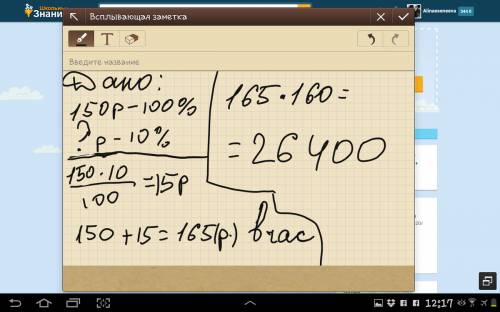 Школьные
Знания
Alinasemeena
3440
Всплывающая заметка
T
Введите название
Дано:
150р - 100%
? р - 10%
150 • 10
100
= 15р
150 + 15 = 165(р.) в час
165 • 160 =
= 26400
12:17